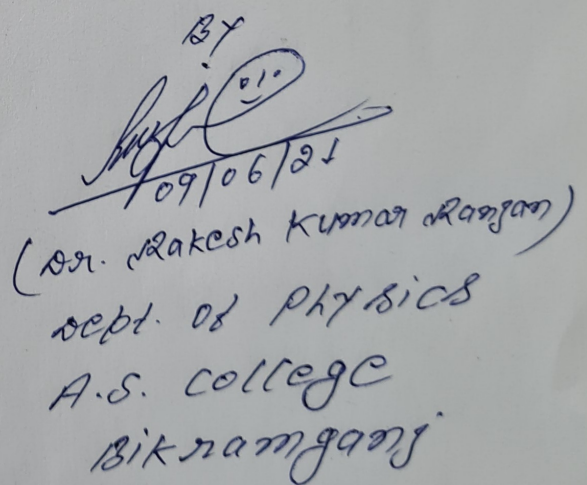 BY
09/06/21
(Dr. Rakesh Kumar Ranjan)
Dept. of Physics
A.S. College
Bikramganj